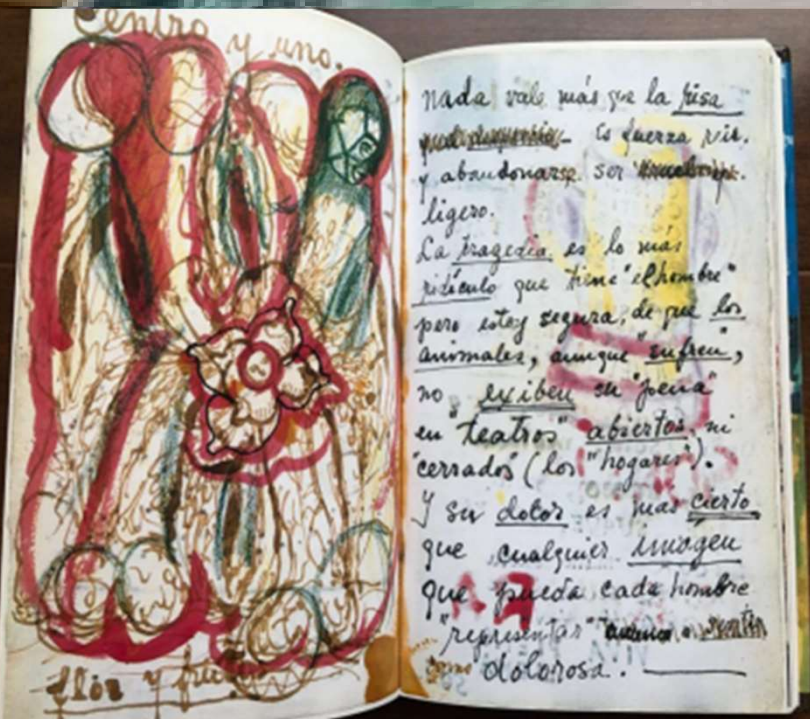 Centro y uno.
flor y fruto
Nada vale más que la risa
Es fuerza reir
y abandonarse. ser
ligero.
La tragedia es lo más
ridículo que tiene "el hombre"
pero estoy segura, de que los
animales, aunque "sufren",
no exiben su "pena"
en "teatros" abiertos, ni
"cerrados" (los "hogares").
Y su dolor es mas cierto
que cualquier imagen
que pueda cada hombre
"representar" sentir
como dolorosa.